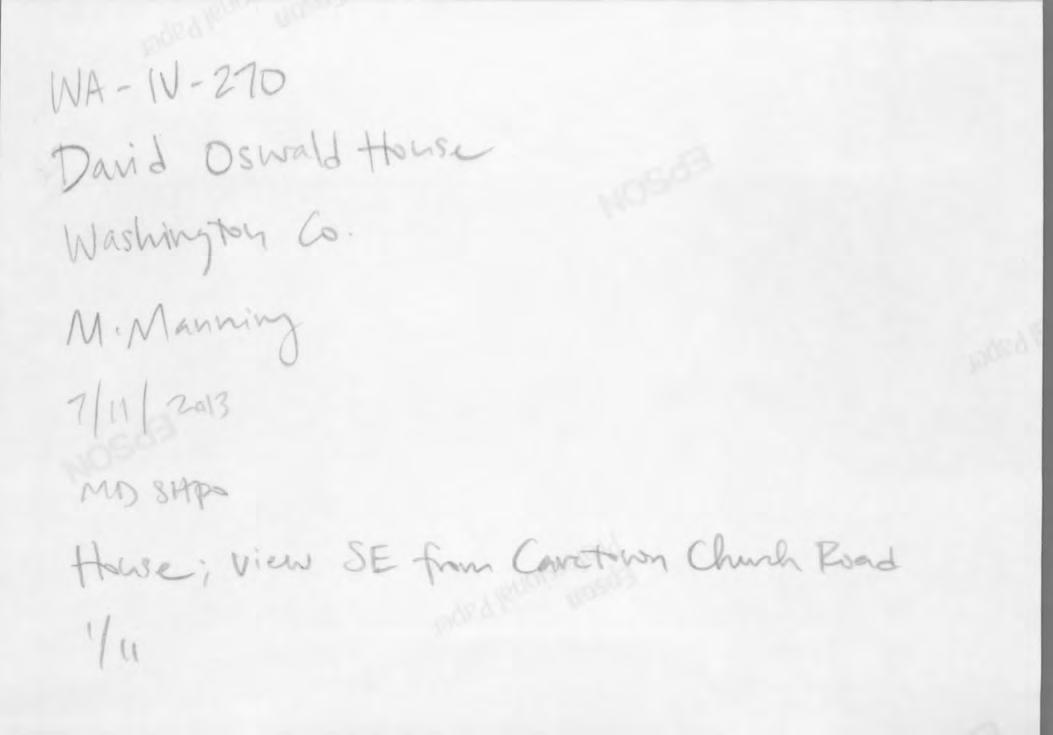 WA-IV-270
David Oswald House
Washington Co.
M. Manning
7/11/2013
MD SHPO
House; view SE from Cavetown Church Road
1/11
EPSON
EPSON
Epson